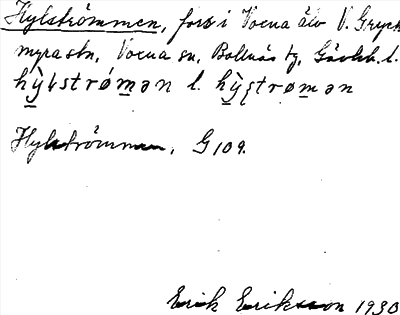 Hylströmmen, fors i Voxna älv V. Gryck
myra stn, Voxna sn, Bollnäs tg, Gävleb. l.
hy̆lstrømən l. hy̆ʂtrømən
Hylströmmen, G 109.
Erik Eriksson 1930